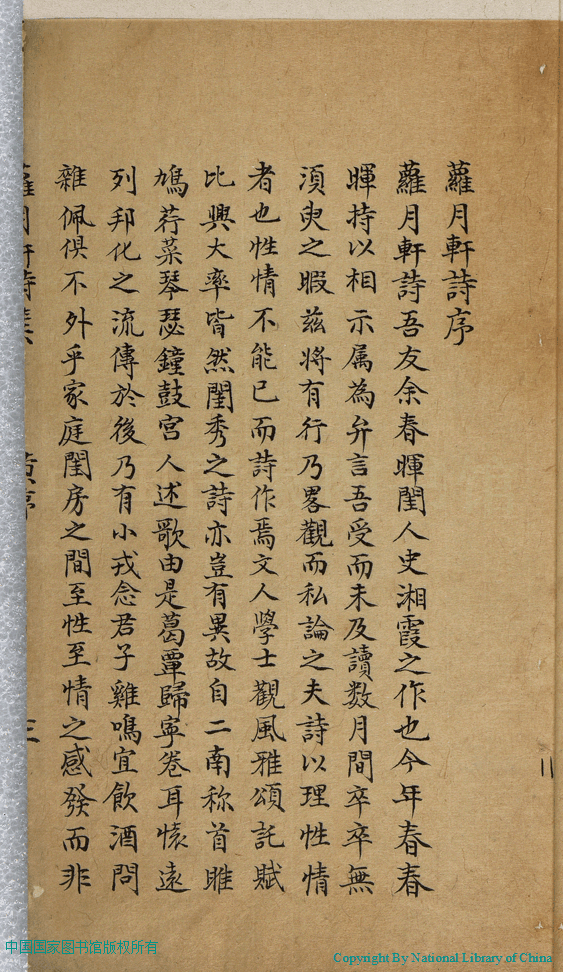 蘿月軒詩序
蘿月軒詩吾友余春暉閨人史湘霞之作也今年春春
暉持以相示属為弁言吾受而未及讀数月間卒卒無
須臾之暇兹將有行乃畧觀而私論之夫詩以理性情
者也性情不能已而詩作焉文人學士觀風雅頌託賦
比興大率皆然閨秀之詩亦豈有異故自二南称首雎
鳩荇菜琴瑟鐘鼓宮人述歌由是葛覃歸寧卷耳懷遠
列邦化之流傳於後乃有小戎念君子雞鳴宜飲酒問
雜佩俱不外乎家庭閨房之間至性至情之感發而非
蘿月軒詩集 黄序 三
中国国家图书馆版权所有
Copyright By National Library of China